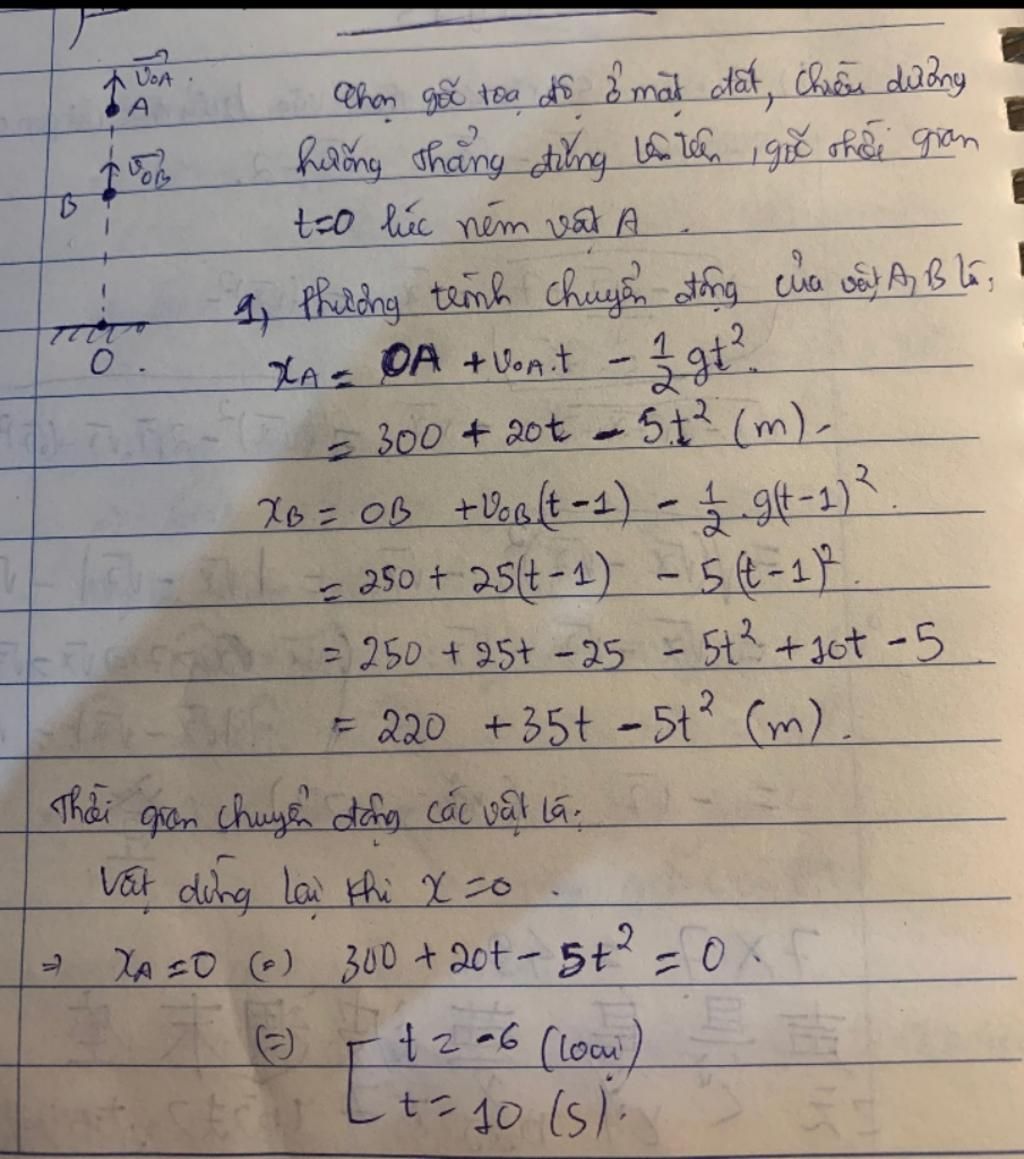 v₀A
A
v₀B
B
O.
Chọn gốc toạ độ ở mặt đất, chiều dương
hướng thẳng đứng lên trên, gốc thời gian
t=0 lúc ném vật A.
1, Phương trình chuyển động của vật A, B là:
x_A = OA + v₀A.t - 1/2 gt².
= 300 + 20t - 5t² (m).
x_B = OB + v₀B(t-1) - 1/2 .g(t-1)².
= 250 + 25(t-1) - 5(t-1)².
= 250 + 25t - 25 - 5t² + 10t - 5
= 220 + 35t - 5t² (m).
Thời gian chuyển động các vật là:
Vật dừng lại khi x = 0.
⇒ x_A = 0 (=) 300 + 20t - 5t² = 0.
(=) [ t = -6 (loại)
t = 10 (s).